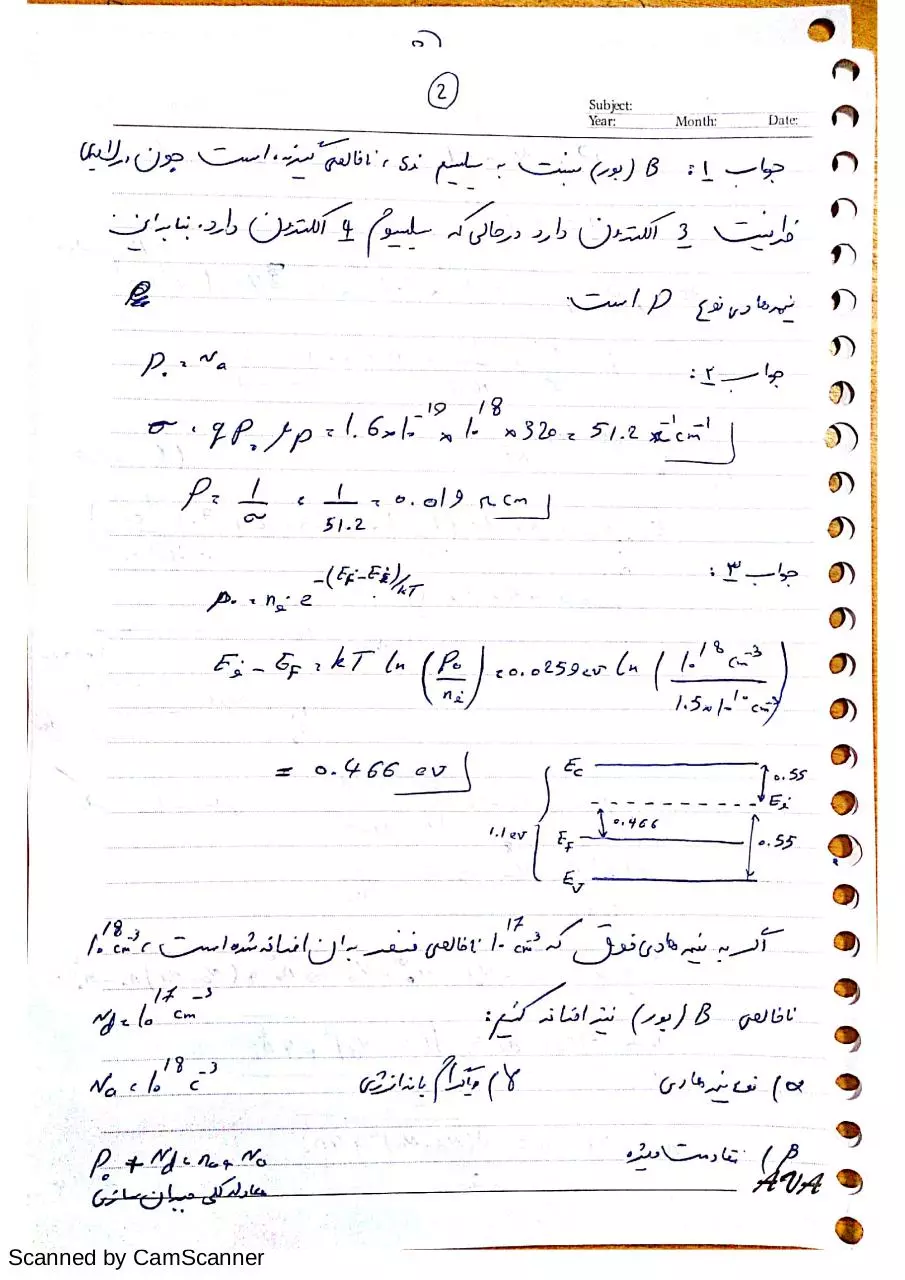 2
Subject:
Year: Month: Date:
جواب 1: B (بور) نسبت به سلیسیم ندی، ناخالصی گیرنده است چون در لایه‌ی
ظرفیت 3 الکترون دارد در حالی که سلیسیوم 4 الکترون دارد. بنابراین
نیمه‌هادی نوع P است.
جواب ۲: P₀ = Na
σ = qP₀ μp = 1.6×10⁻¹⁹ × 10¹⁸ × 320 = 51.2 Ω⁻¹cm⁻¹
ρ = 1/σ = 1/51.2 = 0.019 Ωcm
جواب ۳: p₀ = nᵢ e^-(EF-Ei)/kT
Eᵢ - EF = kT ln (P₀/nᵢ) = 0.0259 ev ln (10¹⁸ cm⁻³ / 1.5×10¹⁰ cm⁻³)
= 0.466 ev
Ec 0.55
Eᵢ
1.1 ev 0.466
EF 0.55
Ev
اگر به نیمه هادی فوق که 10¹⁷ cm⁻³ ناخالصی فسفر به آن اضافه شده است، 10¹⁸ cm⁻³
ناخالصی B (بور) نیز اضافه کنیم: Nd = 10¹⁷ cm⁻³
α) نوع نیمه هادی γ) دیاگرام باند انرژی Na = 10¹⁸ c⁻³
β) مقاومت ویژه P₀ + Nd = n₀ + Na
معادله کلی جبران سازی
AVA
Scanned by CamScanner